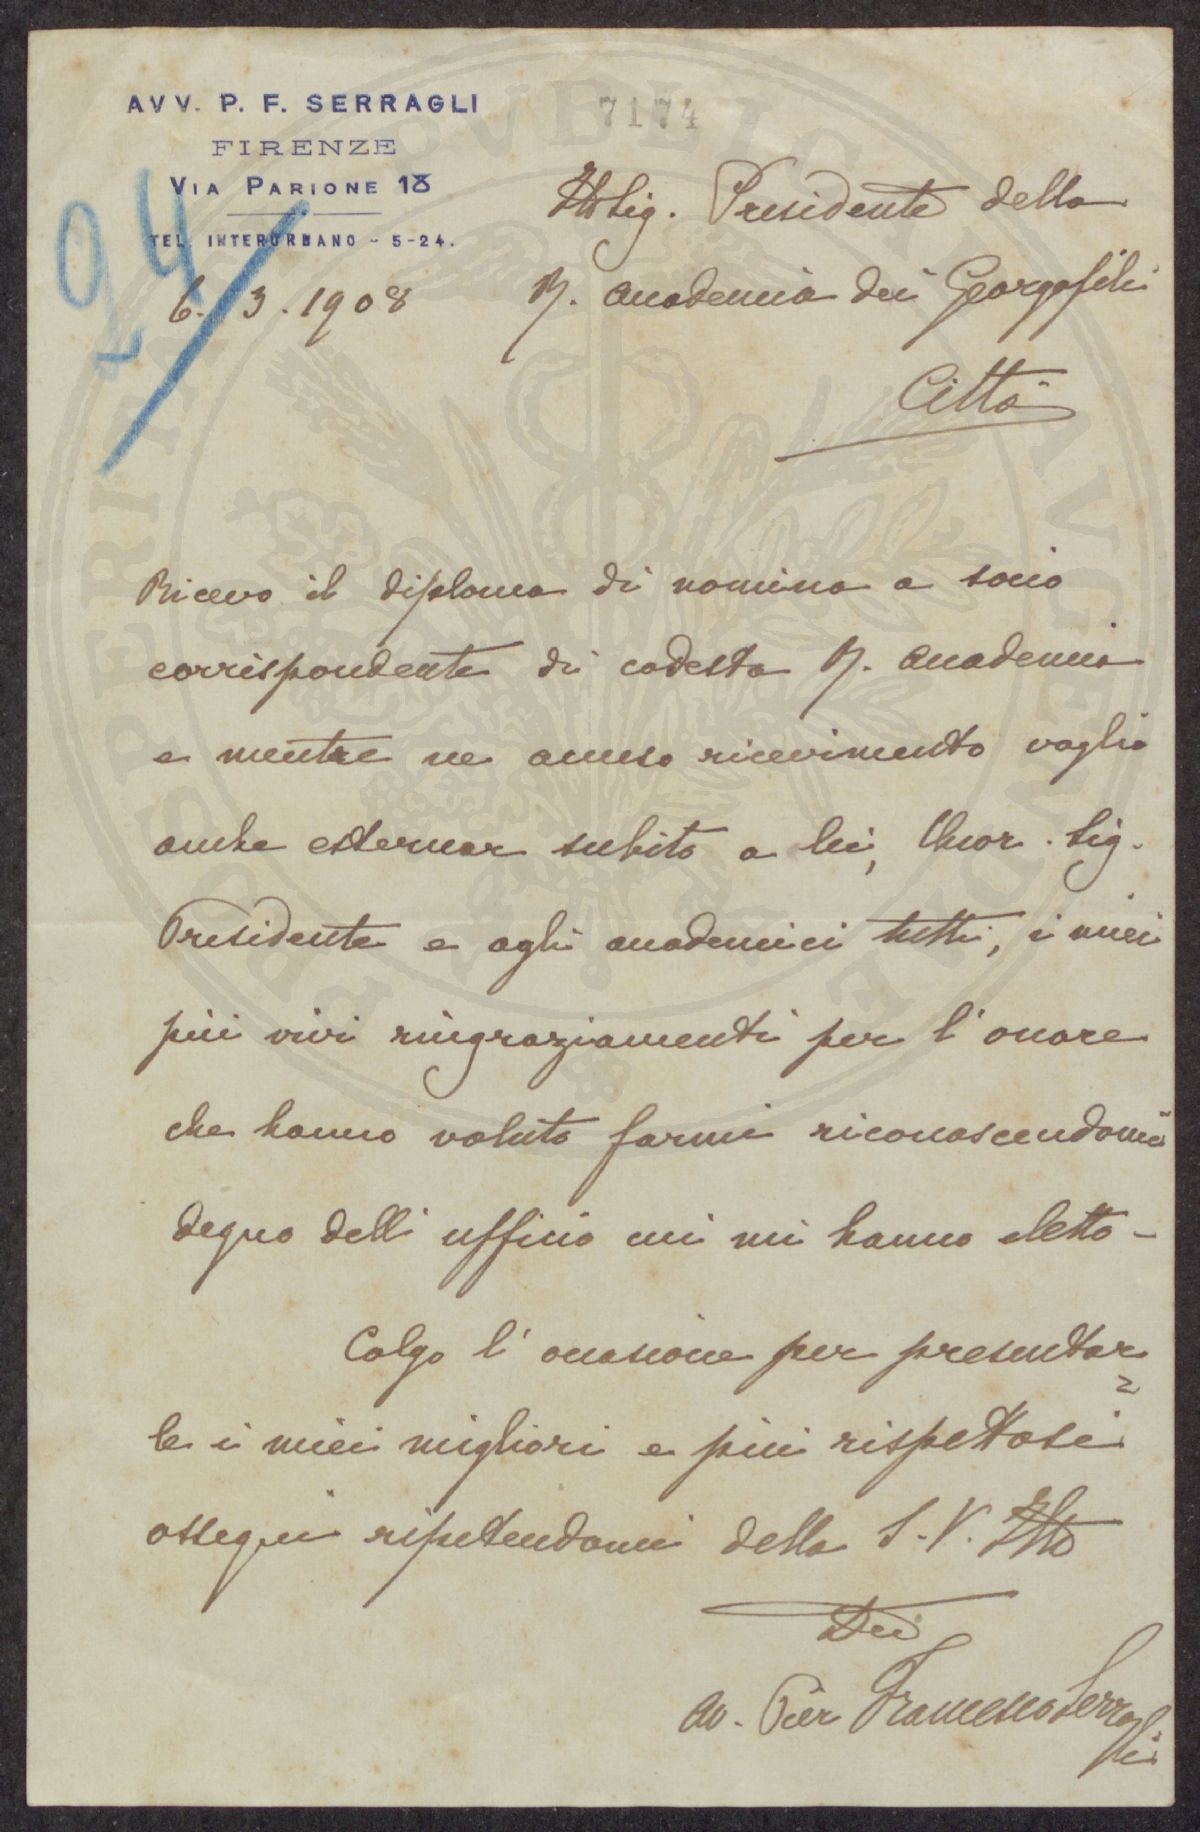 AVV. P. F. SERRAGLI
FIRENZE
VIA PARIONE 18
TEL. INTERURBANO - 5-24.
7174
94
6. 3. 1908
Ill Sig. Presidente della
R. Accademia dei Georgofili
Città
Ricevo il diploma di nomina a socio
corrispondente di codesta R. Accademia
e mentre ne accuso ricevimento voglio
anche esternar subito a lei, Onor. Sig.
Presidente e agli accademici tutti, i miei
più vivi ringraziamenti per l'onore
che hanno voluto farmi riconoscendomi
degno dell'ufficio cui mi hanno eletto -
Colgo l'occasione per presentar=
le i miei migliori e più rispettosi
ossequi ripetendomi della S. V. Ill
Dev
Av. Pier Francesco Serragli
PROSPERITATI PUBLICAE AUGENDAE